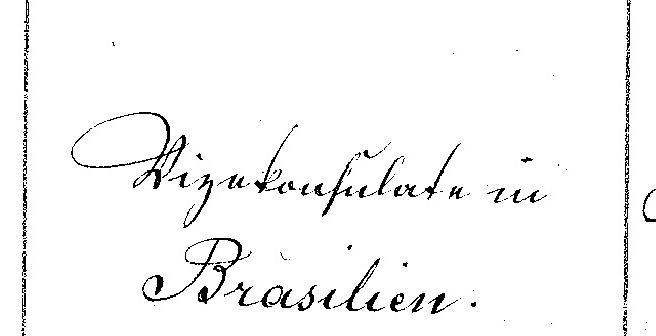 Vizekonsulate in
Brasilien.